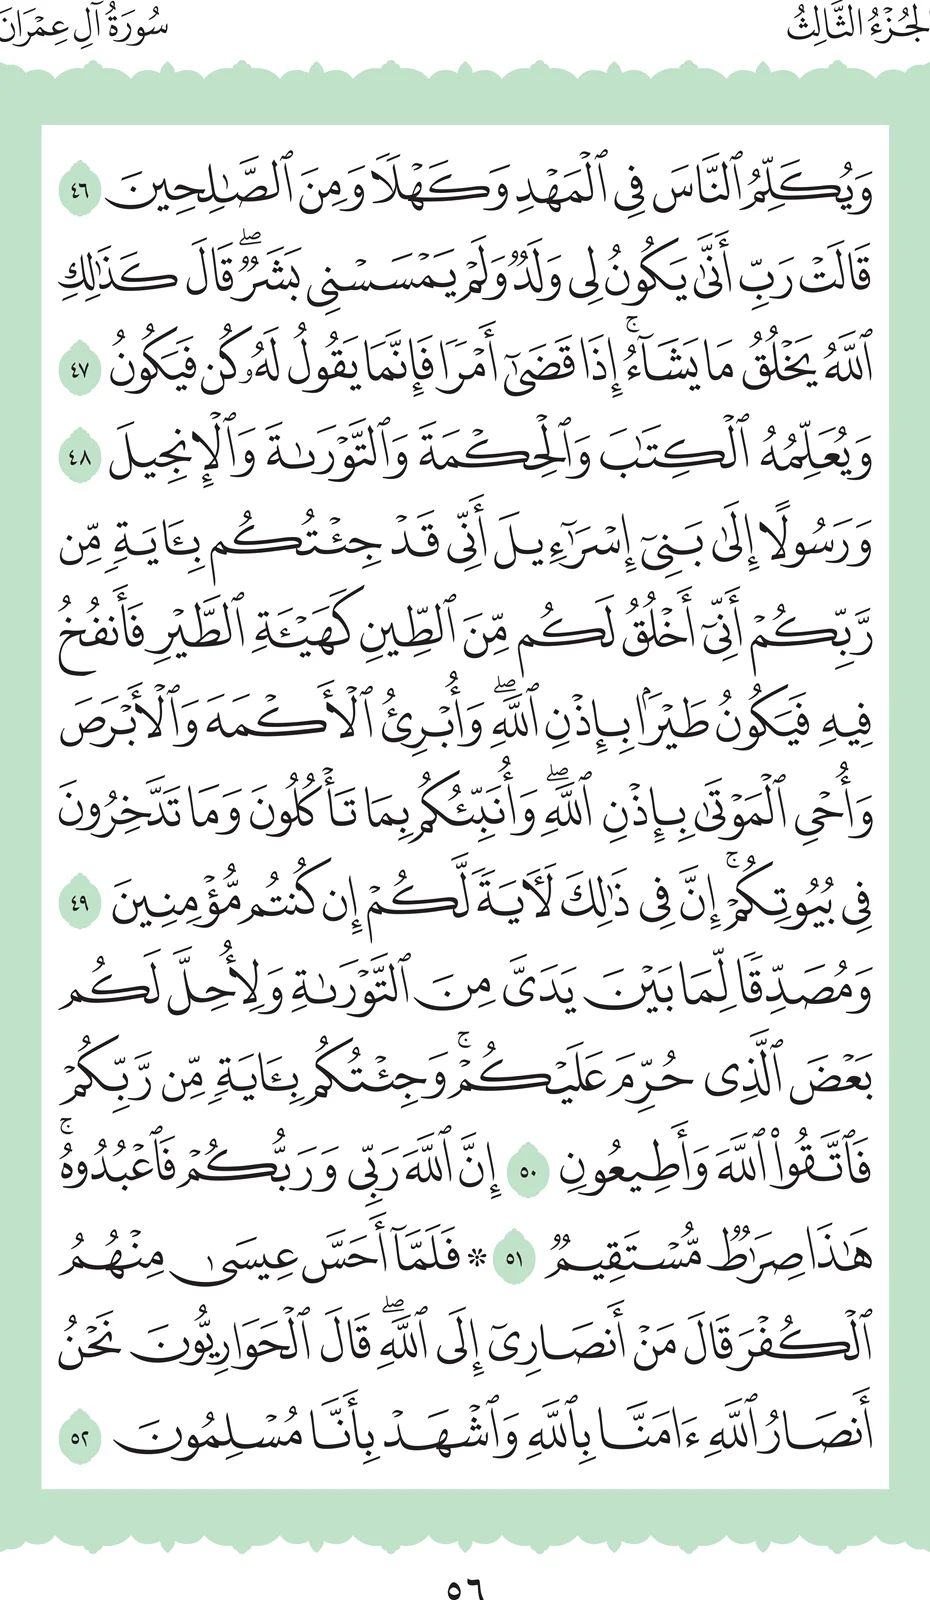 الجُزْءُ الثَّالِثُ
سُورَةُ آلِ عِمْرَانَ
وَيُكَلِّمُ ٱلنَّاسَ فِي ٱلْمَهْدِ وَكَهْلًا وَمِنَ ٱلصَّٰلِحِينَ ٤٦
قَالَتْ رَبِّ أَنَّىٰ يَكُونُ لِي وَلَدٌ وَلَمْ يَمْسَسْنِي بَشَرٌۖ قَالَ كَذَٰلِكِ
ٱللَّهُ يَخْلُقُ مَا يَشَآءُۚ إِذَا قَضَىٰٓ أَمْرًا فَإِنَّمَا يَقُولُ لَهُۥ كُن فَيَكُونُ ٤٧
وَيُعَلِّمُهُ ٱلْكِتَٰبَ وَٱلْحِكْمَةَ وَٱلتَّوْرَىٰةَ وَٱلْإِنجِيلَ ٤٨
وَرَسُولًا إِلَىٰ بَنِيٓ إِسْرَٰٓءِيلَ أَنِّي قَدْ جِئْتُكُم بِـَٔايَةٍ مِّن
رَّبِّكُمْ أَنِّيٓ أَخْلُقُ لَكُم مِّنَ ٱلطِّينِ كَهَيْـَٔةِ ٱلطَّيْرِ فَأَنفُخُ
فِيهِ فَيَكُونُ طَيْرًۢا بِإِذْنِ ٱللَّهِۖ وَأُبْرِئُ ٱلْأَكْمَهَ وَٱلْأَبْرَصَ
وَأُحْيِ ٱلْمَوْتَىٰ بِإِذْنِ ٱللَّهِۖ وَأُنَبِّئُكُم بِمَا تَأْكُلُونَ وَمَا تَدَّخِرُونَ
فِي بُيُوتِكُمْۚ إِنَّ فِي ذَٰلِكَ لَأٓيَةً لَّكُمْ إِن كُنتُم مُّؤْمِنِينَ ٤٩
وَمُصَدِّقًا لِّمَا بَيْنَ يَدَيَّ مِنَ ٱلتَّوْرَىٰةِ وَلِأُحِلَّ لَكُم
بَعْضَ ٱلَّذِي حُرِّمَ عَلَيْكُمْۚ وَجِئْتُكُم بِـَٔايَةٍ مِّن رَّبِّكُمْ
فَٱتَّقُوا۟ ٱللَّهَ وَأَطِيعُونِ ٥٠ إِنَّ ٱللَّهَ رَبِّي وَرَبُّكُمْ فَٱعْبُدُوهُۚ
هَٰذَا صِرَٰطٌ مُّسْتَقِيمٌ ٥١ * فَلَمَّآ أَحَسَّ عِيسَىٰ مِنْهُمُ
ٱلْكُفْرَ قَالَ مَنْ أَنصَارِيٓ إِلَى ٱللَّهِۖ قَالَ ٱلْحَوَارِيُّونَ نَحْنُ
أَنصَارُ ٱللَّهِ ءَامَنَّا بِٱللَّهِ وَٱشْهَدْ بِأَنَّا مُسْلِمُونَ ٥٢
٥٦